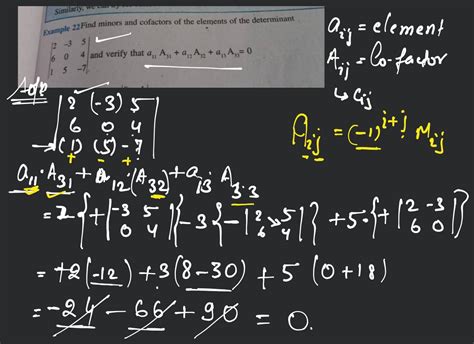 Similarly, we can
Example 22 Find minors and cofactors of the elements of the determinant
|2 -3 5|
|6 0 4| and verify that a₁₁ A₃₁ + a₁₂ A₃₂ + a₁₃ A₃₃ = 0
|1 5 -7|
aᵢⱼ = element
Aᵢⱼ = Co-factor
↳ Cᵢⱼ
|2 (-3) 5|
|6 0 4|
→ |(1) (5) -7|
+ - +
Aᵢⱼ = (-1)^(i+j) Mᵢⱼ
a₁₁ · A₃₁ + a₁₂ (A₃₂) + a₁₃ A₃₃
= 2 {+ |-3 5; 0 4|} - 3 {- |2 5; 6 4|} + 5 · {+ |2 -3; 6 0|}
= +2 (-12) + 3 (8 - 30) + 5 (0 + 18)
= -24 - 66 + 90 = 0.